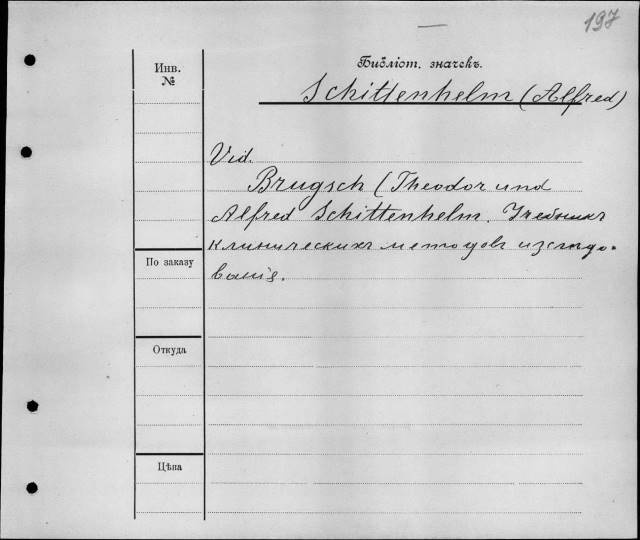 197
Инв.
№
Библіот. значекъ.
Schittenhelm (Alfred)
Vid.
Brugsch (Theodor und
Alfred Schittenhelm. Учебникъ
клиническихъ методовъ изслѣдо-
ванія.
По заказу
Откуда
Цѣна